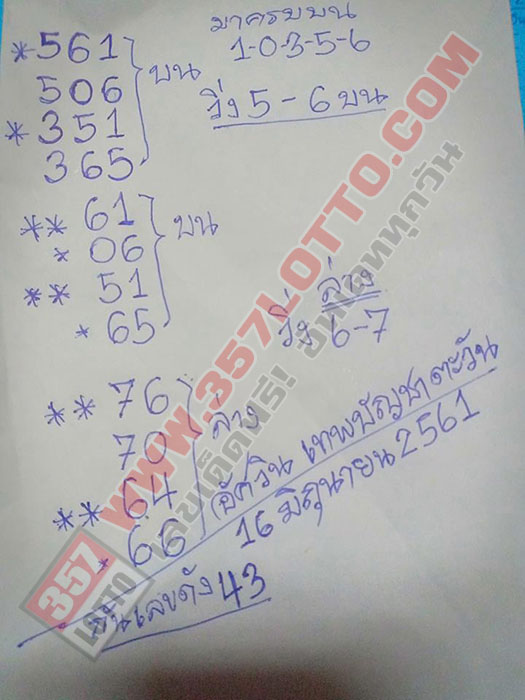 มาครบบน
1-0-3-5-6
*561
506
*351
365
บน
วิ่ง 5-6 บน
** 61
* 06
** 51
* 65
บน
ล่าง
วิ่ง 6-7
**76
70
**64
*66
ล่าง
อัศวิน เทพบัญชาตะวัน
16 มิถุนายน 2561
เลขดัง 43
WWW.357LOTTO.COM
เลขเด็ดฟรี! อัพเดททุกวัน
357
LOTTO